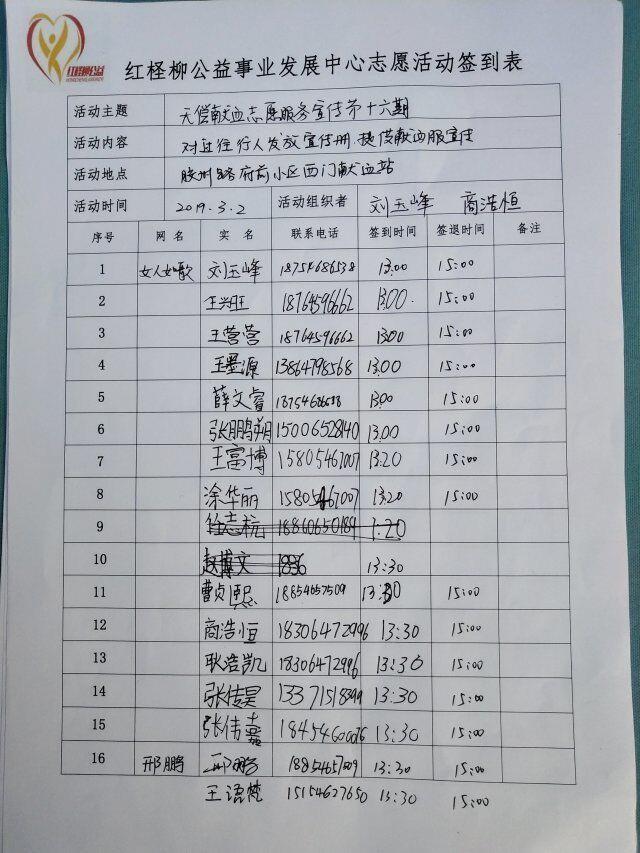 红柽柳公益
红柽柳公益事业发展中心志愿活动签到表
活动主题 无偿献血志愿服务宣传第十六期
活动内容 对过往行人发放宣传册 提供献血服宣传
活动地点 胶州路府前小区西门献血站
活动时间 2019.3.2 活动组织者 刘玉峰 商浩恒
序号 网名 实名 联系电话 签到时间 签退时间 备注
1 女人如歌 刘玉峰 18754686538 13:00 15:00
2 王兴旺 18764596662 13:00 15:00
3 王营营 18764596662 13:00 15:00
4 王墨源 13864798568 13:00 15:00
5 薛文睿 13:00 15:00
6 张鹏翔 15006528140 13:00 15:00
7 王富博 15805467007 13:20 15:00
8 涂华丽 15805467007 13:20 15:00
9 任志杭 18860650184 1:20
10 赵博文 1886 13:30
11 曹贞熙 18854657509 13:30 15:00
12 商浩恒 18306472996 13:30 15:00
13 耿浩凯 18306472996 13:30 15:00
14 张传昊 13371518399 13:30 15:00
15 张伟嘉 18454600076 13:30 15:00
16 邢鹏 邢鹏 18854657009 13:30 15:00
王语梵 15154627650 13:30 15:00